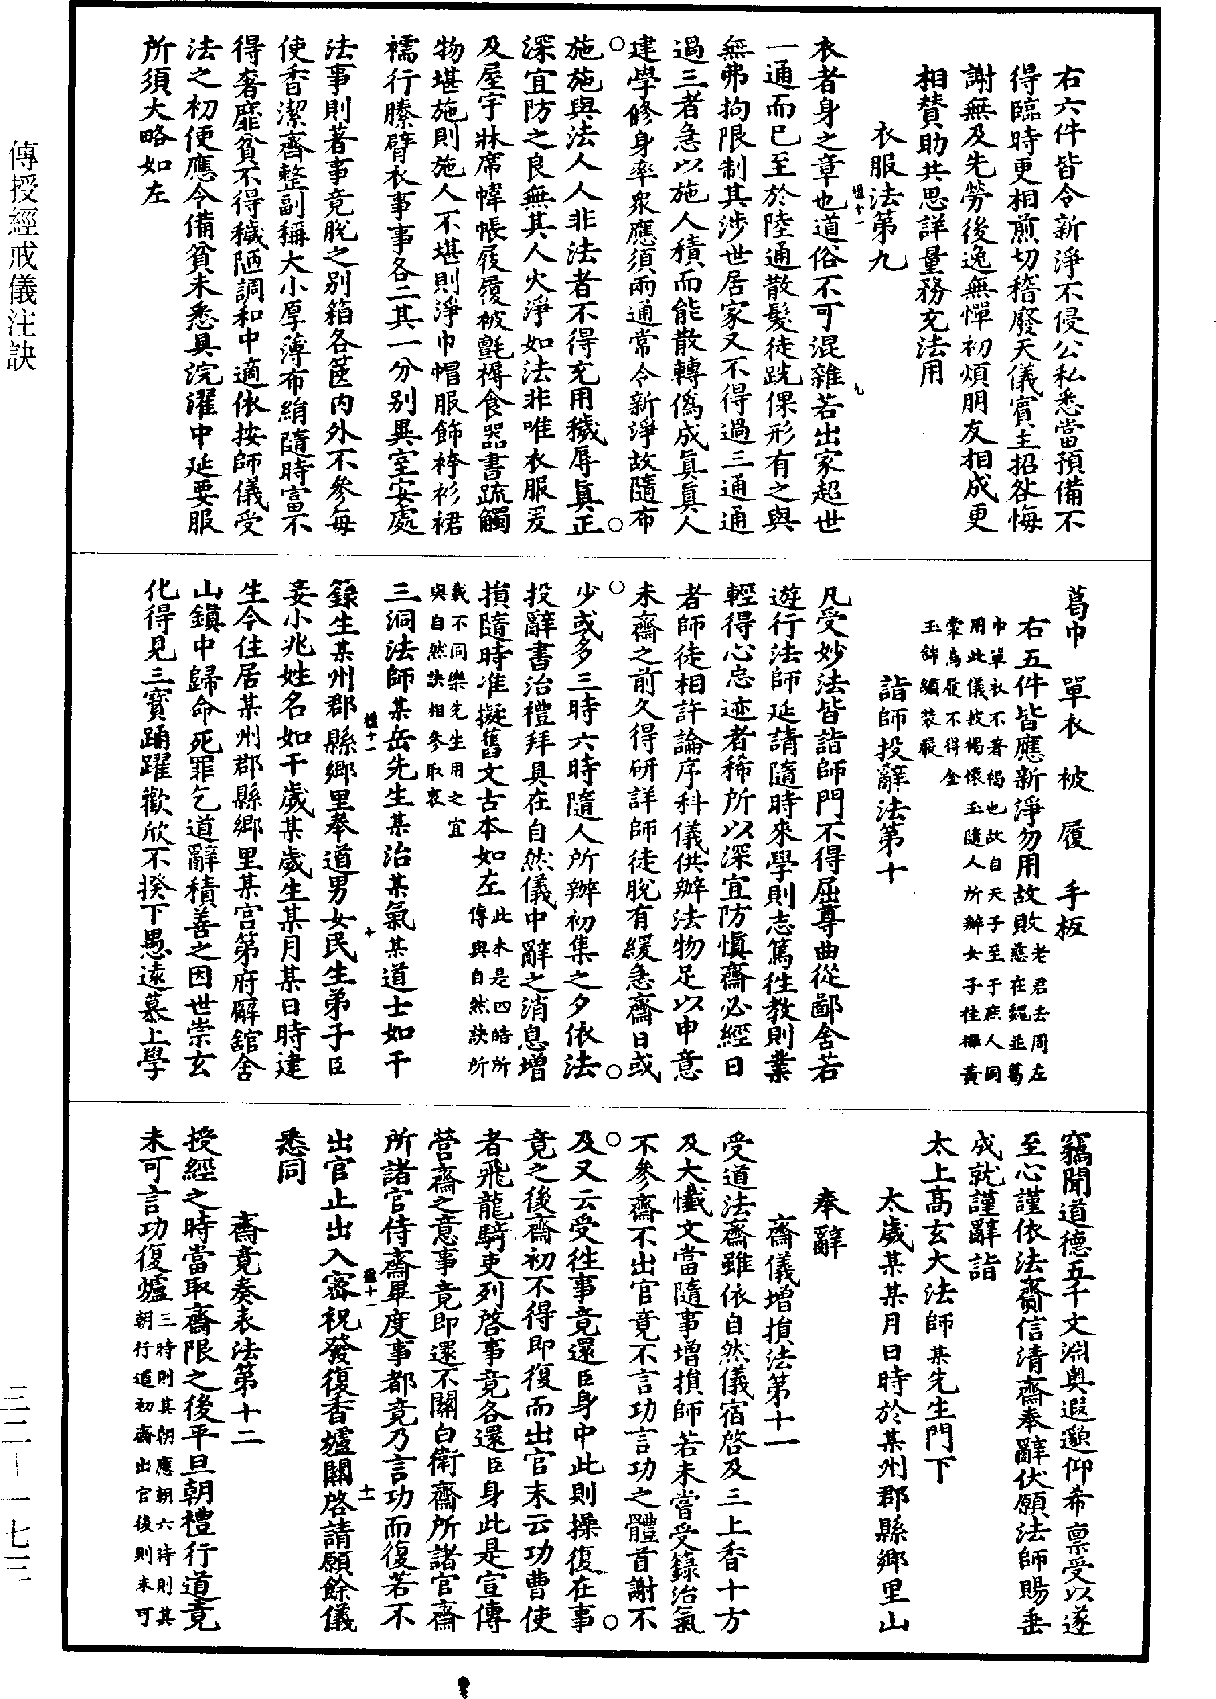 右六件皆令新淨不侵公私悉當預備不
得臨時更相煎切稽廢天儀賓主招咎悔
謝無及先勞後逸無憚初煩朋友相成更
相贊助共思詳量務充法用
衣服法第九
衣者身之章也道俗不可混雜若出家超世
一通而已至於陸通散髮徒跣倮形有之與
無弗拘限制其涉世居家又不得過三通通
過三者急以施人積而能散轉僞成眞眞人
建學修身率衆應須兩通常令新淨故隨布
施施與法人人非法者不得充用穢辱眞正
深宜防之良無其人火淨如法非唯衣服爰
及屋宇牀席幃帳屐履被氈褥食器書疏觸
物堪施則施人不堪則淨巾帽服飾袴衫裙
襦行縢臂衣事事各二其一分別異室安處
法事則著事竟脫之別箱各篋內外不參每
使香潔齊整副稱大小厚薄布絹隨時富不
得奢靡貧不得穢陋調和中適依按師儀受
法之初便應令備貧未悉具浣濯中延要服
所須大略如左
葛巾　單衣　被　履　手板
右五件皆應新淨勿用故敗老君去周左慈在魏並葛
巾單衣不著褐也故自天子至于庶人同
用此儀救褐懷玉隨人所辦女子佳櫸黃
裳爲履不得金
玉飾纈裝嚴
詣師投辭法第十
凡受妙法皆詣師門不得屈尊曲從鄙舍若
遊行法師延請隨時來學則志篤往教則業
輕得心忘迹者稀所以深宜防愼齋必經日
者師徒相許論序科儀供辦法物足以申意
未齋之前久得研詳師徒脫有緩急齋日或
少或多三時六時隨人所辦初集之夕依法
投辭書治禮拜具在自然儀中辭之消息增
損隨時准擬舊文古本如左此本是四皓所傳與自然訣所
載不同樂先生用之宜
與自然訣相參取衷
三洞法師某岳先生某治某氣某道士如干
籙生某州郡縣鄉里奉道男女民生弟子臣
妾小兆姓名如干歲某歲生某月某日時建
生今住居某州郡縣鄉里某宮第府廨舘舍
山鎭中歸命死罪乞道辭積善之因世崇玄
化得見三寶踊躍歡欣不揆下愚遠慕上學
竊聞道德五千文淵奧遐邈仰希禀受以遂
至心謹依法齎信清齋奉辭伏願法師賜垂
成就謹辭詣
太上高玄大法師某先生門下
太歲某某月日時於某州郡縣鄉里山
奉辭
齋儀增損法第十一
受道法齋雖依自然儀宿啓及三上香十方
及大懺文當隨事增損師若未嘗受籙治氣
不參齋不出官竟不言功言功之體首謝不
及又云受徃事竟還臣身中此則操復在事
竟之後齋初不得即復而出官末云功曹使
者飛龍騎吏列啓事竟各還臣身此是宣傳
營齋之意事竟即還不關白衛齋所諸官齋
所諸官侍齋畢度事都竟乃言功而復若不
出官止出入密祝發復香爐關啓請願餘儀
悉同
齋竟奏表法第十二
授經之時當取齋限之後平旦朝禮行道竟
未可言功復爐三時則其朝應朝六時則其朝行道初齋出官後則未可
傳授經戒儀注訣
三二—一七三